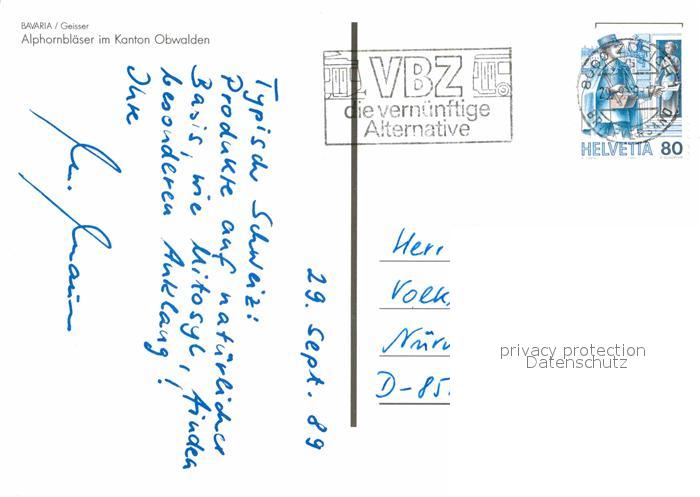 BAVARIA / Geisser
Alphornbläser im Kanton Obwalden
VBZ
die vernünftige
Alternative
HELVETIA 80
29. Sept. 89
Typisch Schweiz:
Produkte auf natürlicher
Basis, wie Mitosyl, finden
besonderen Anklang!
Ihre
Herr
Volk
Nür
D-85
privacy protection
Datenschutz